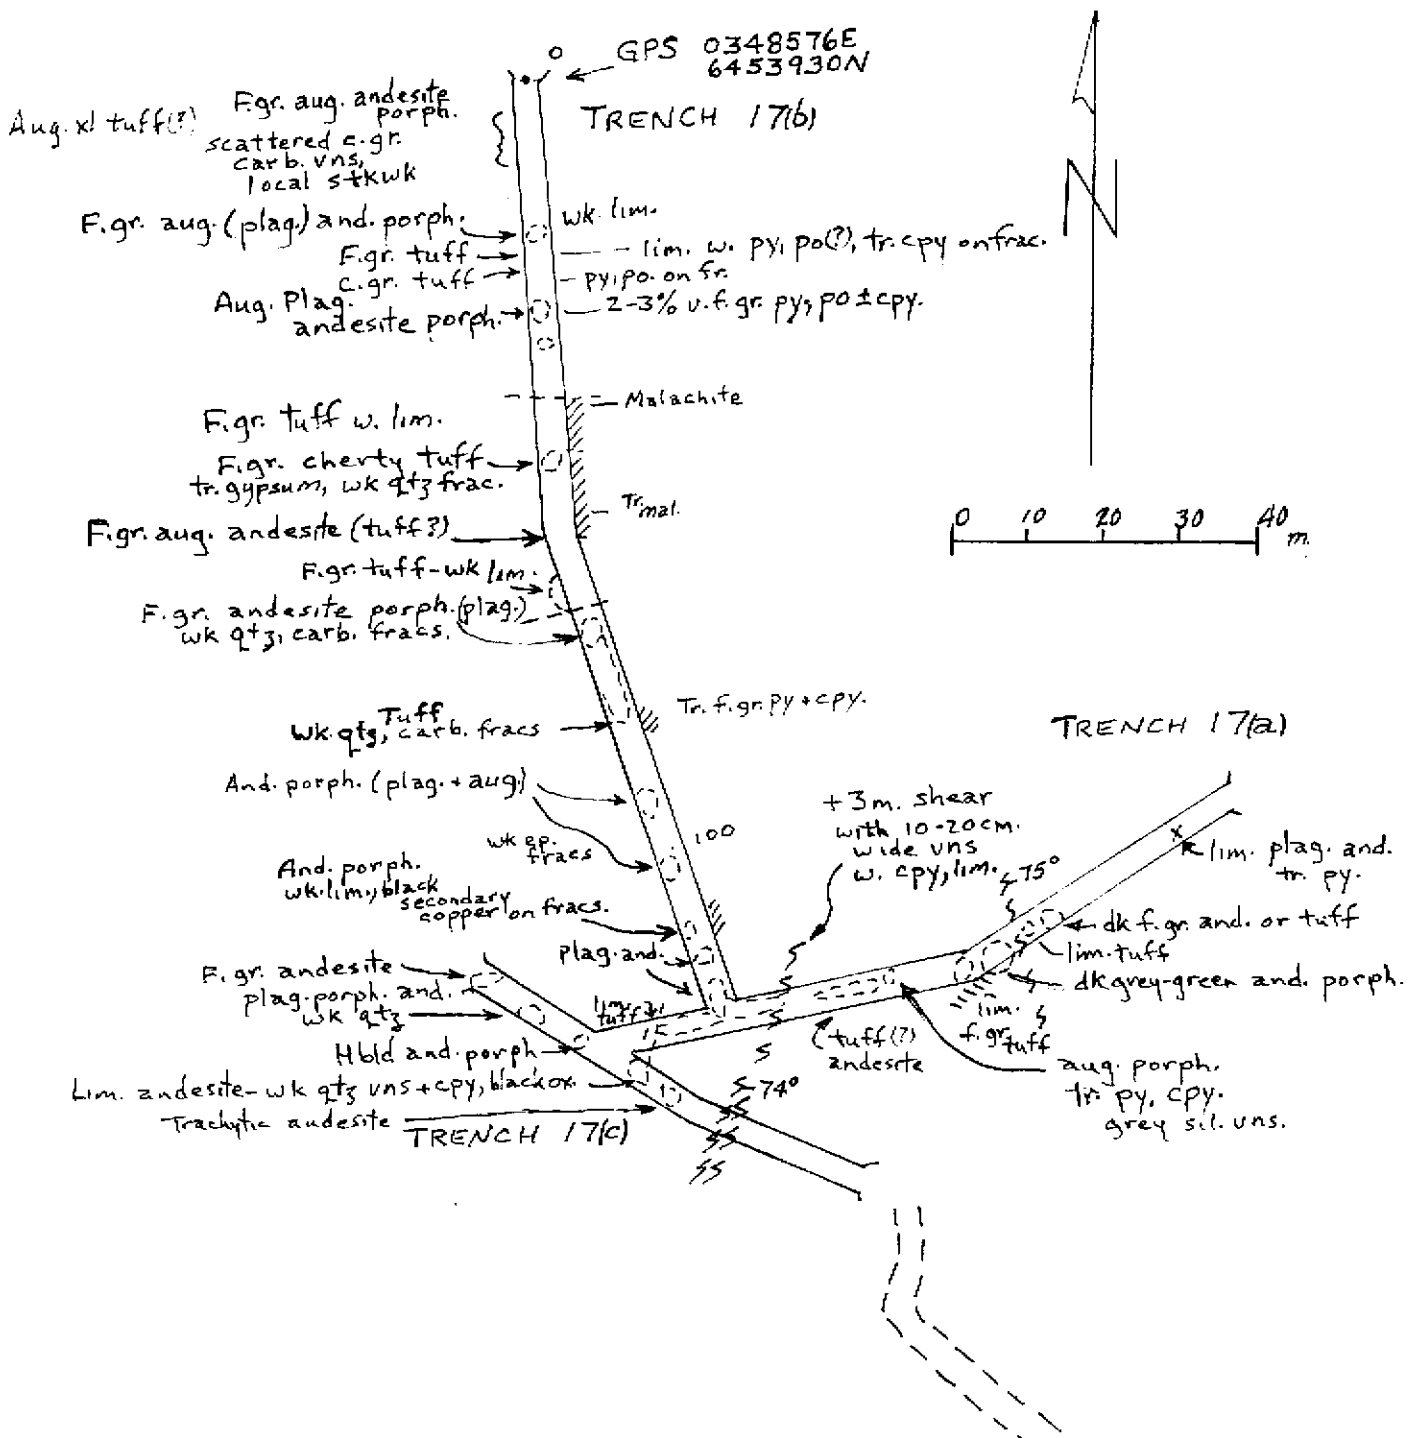 O GPS 0348576E
6453930N
TRENCH 17(b)
N
Aug. xl tuff(?)
F.gr. aug. andesite
porph.
scattered c.gr.
carb. vns,
local stkwk
F.gr. aug. (plag.) and. porph.
wk. lim.
F.gr. tuff
lim. w. py, po(?), tr. cpy on frac.
c.gr. tuff
py, po. on fr.
Aug. Plag.
andesite porph.
2-3% v.f.gr. py, po ± cpy.
Malachite
F.gr. tuff w. lim.
F.gr. cherty tuff
tr. gypsum, wk qtz frac.
Tr. mal.
0 10 20 30 40
m.
F.gr. aug. andesite (tuff?)
F.gr. tuff - wk lim.
F.gr. andesite porph. (plag.)
wk qtz, carb. fracs.
Tuff
Wk. qtz, carb. fracs
Tr. f.gr. py + cpy.
TRENCH 17(a)
And. porph. (plag. + aug)
100
wk ep.
fracs
+3m. shear
with 10-20cm.
wide vns
w. cpy, lim.
75°
lim. plag. and.
tr. py.
And. porph.
wk. lim., black
secondary
copper on fracs.
dk f.gr. and. or tuff
lim. tuff
dk grey-green and. porph.
plag. and.
F. gr. andesite
plag. porph. and.
wk qtz
lim.
tuff
lim.
f.gr.
tuff
tuff(?)
andesite
aug. porph.
tr. py, cpy.
grey sil. vns.
Hbld and. porph
Lim. andesite - wk qtz vns + cpy, black ox.
74°
Trachytic andesite
TRENCH 17(c)